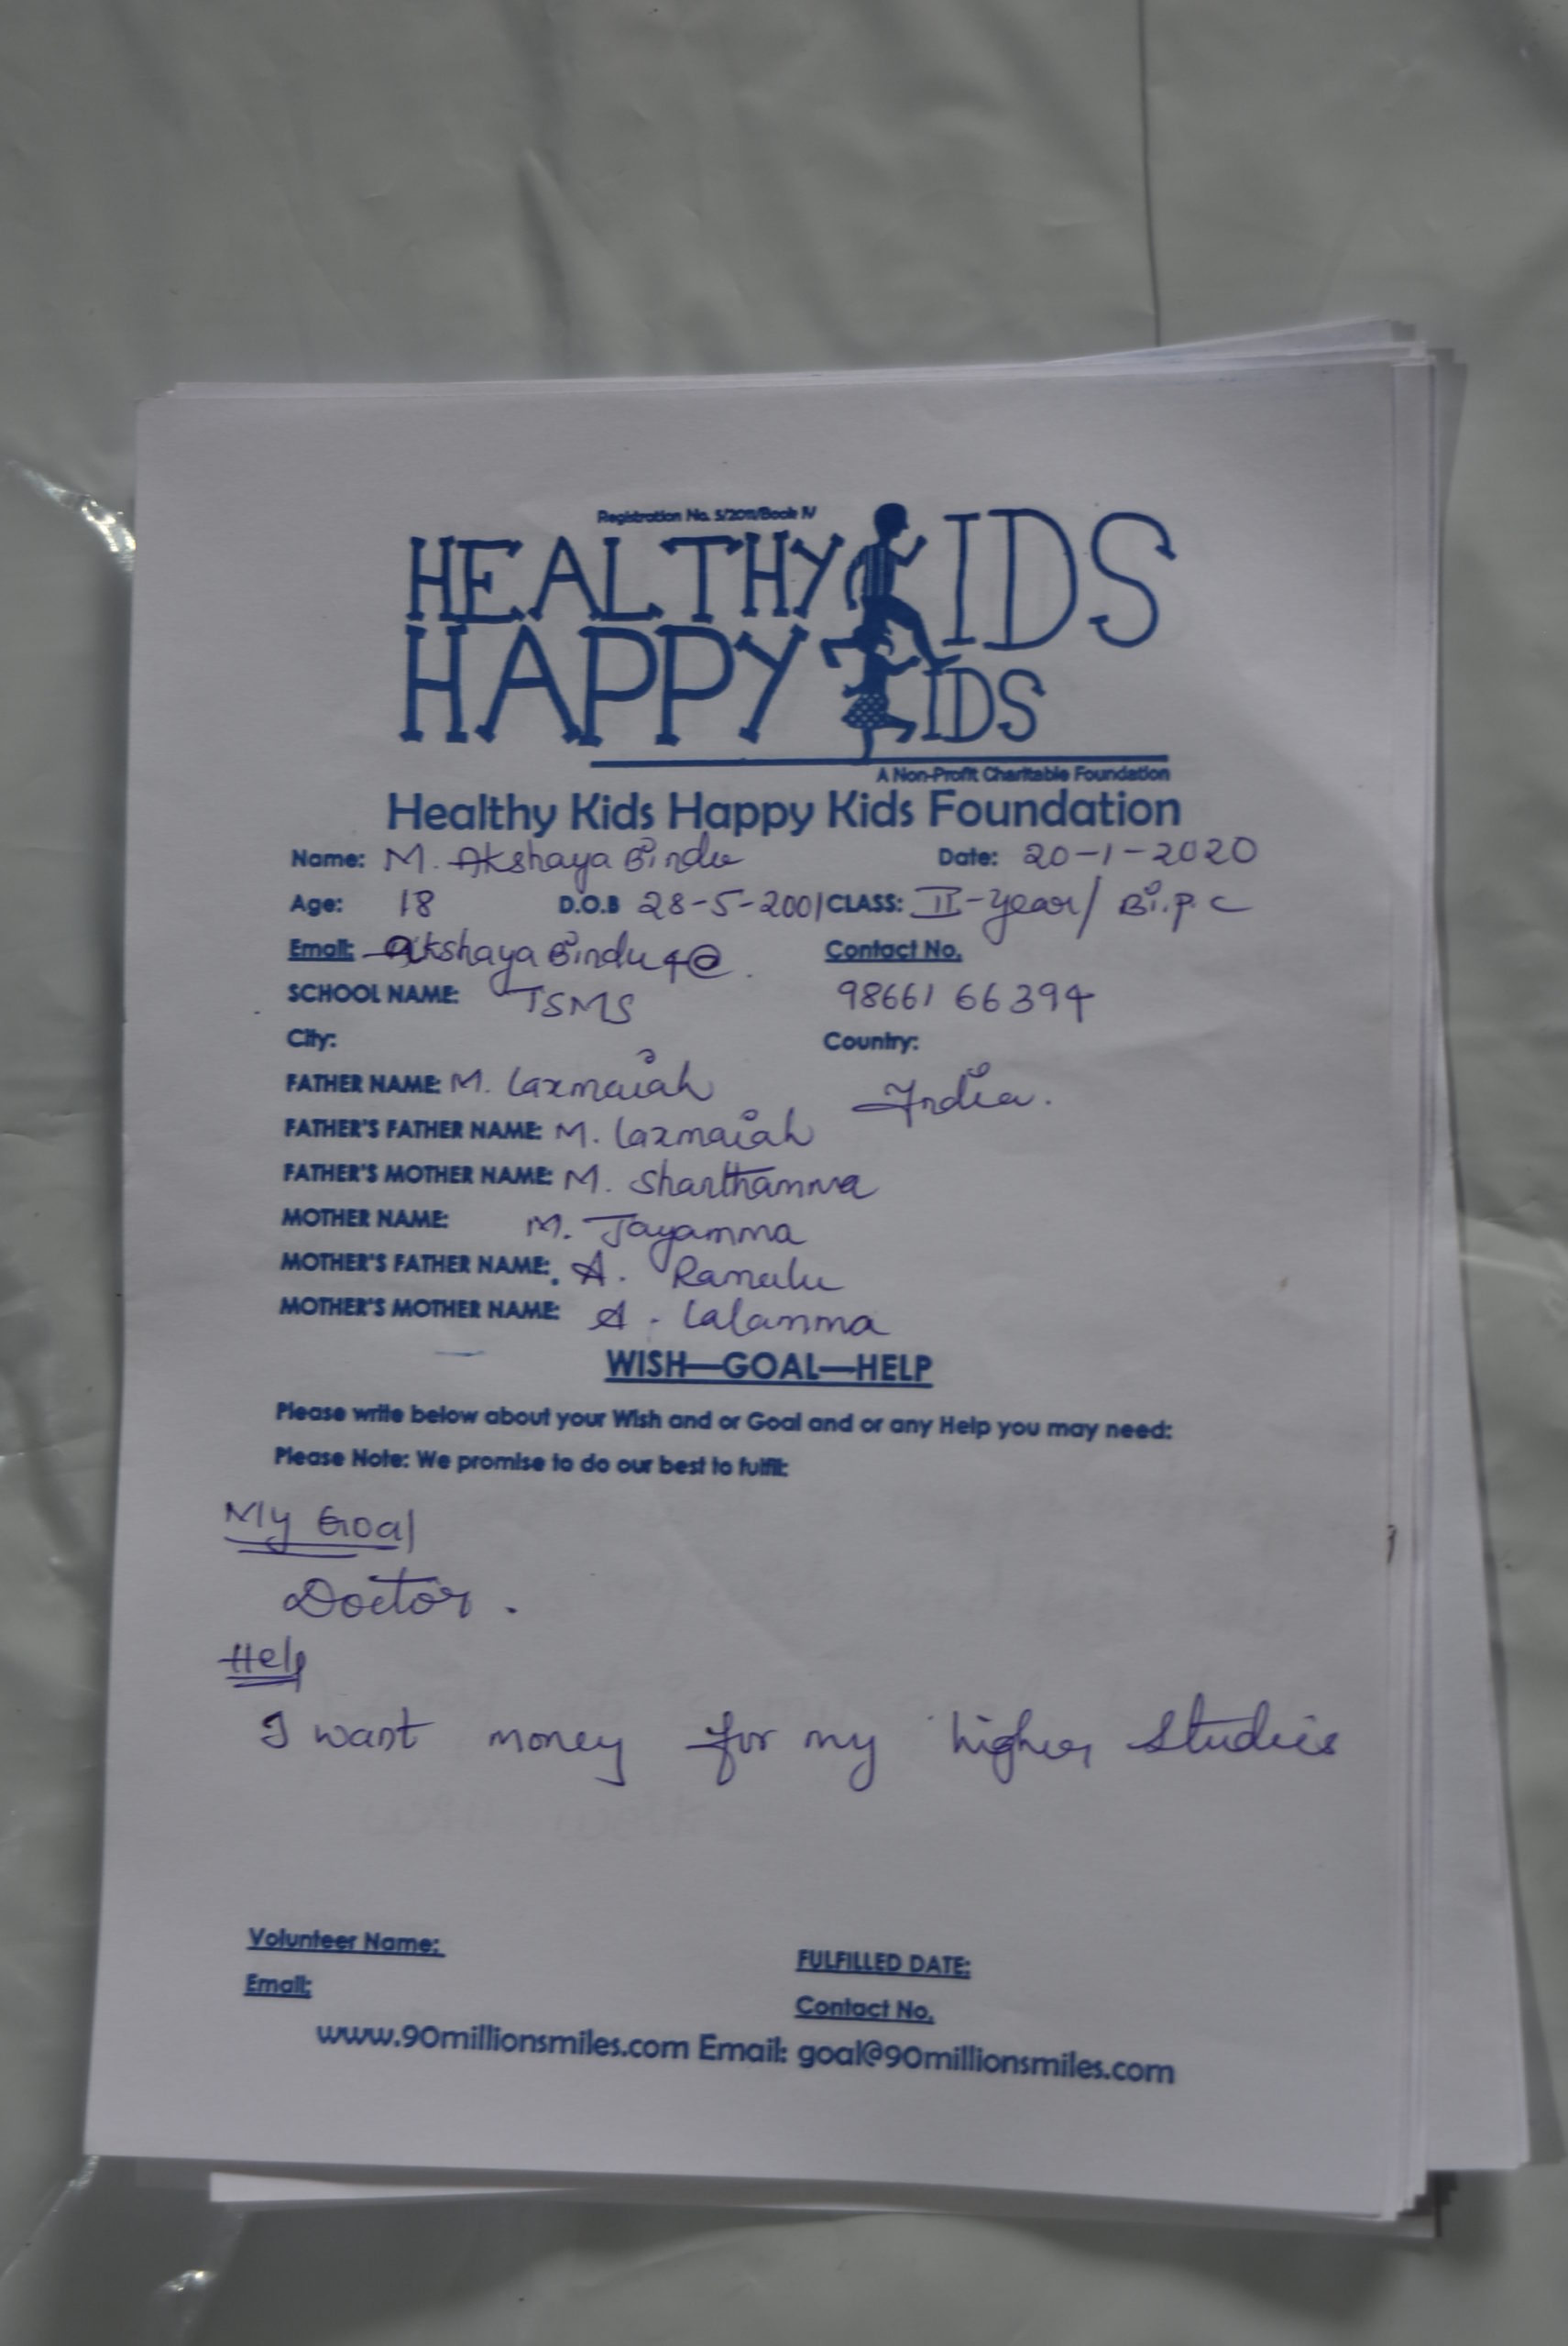 Registration No. 5/2011/Book IV
HEALTHY KIDS
HAPPY KIDS
A Non-Profit Charitable Foundation
Healthy Kids Happy Kids Foundation
Name: M. Akshaya Bindu Date: 20-1-2020
Age: 18 D.O.B 28-5-2001 CLASS: II-year/ Bi.p.c
Email: akshayaBindu4@ Contact No.
SCHOOL NAME: TSMS 98661 66394
City: Country:
FATHER NAME: M. Laxmaiah India.
FATHER'S FATHER NAME: M. Laxmaiah
FATHER'S MOTHER NAME: M. Shanthamma
MOTHER NAME: M. Jayamma
MOTHER'S FATHER NAME: A. Ramulu
MOTHER'S MOTHER NAME: A. Lalamma
WISH—GOAL—HELP
Please write below about your Wish and or Goal and or any Help you may need:
Please Note: We promise to do our best to fulfil:
My Goal
Doctor.
Help
I want money for my higher studies
Volunteer Name: FULFILLED DATE:
Email: Contact No.
www.90millionsmiles.com Email: goal@90millionsmiles.com